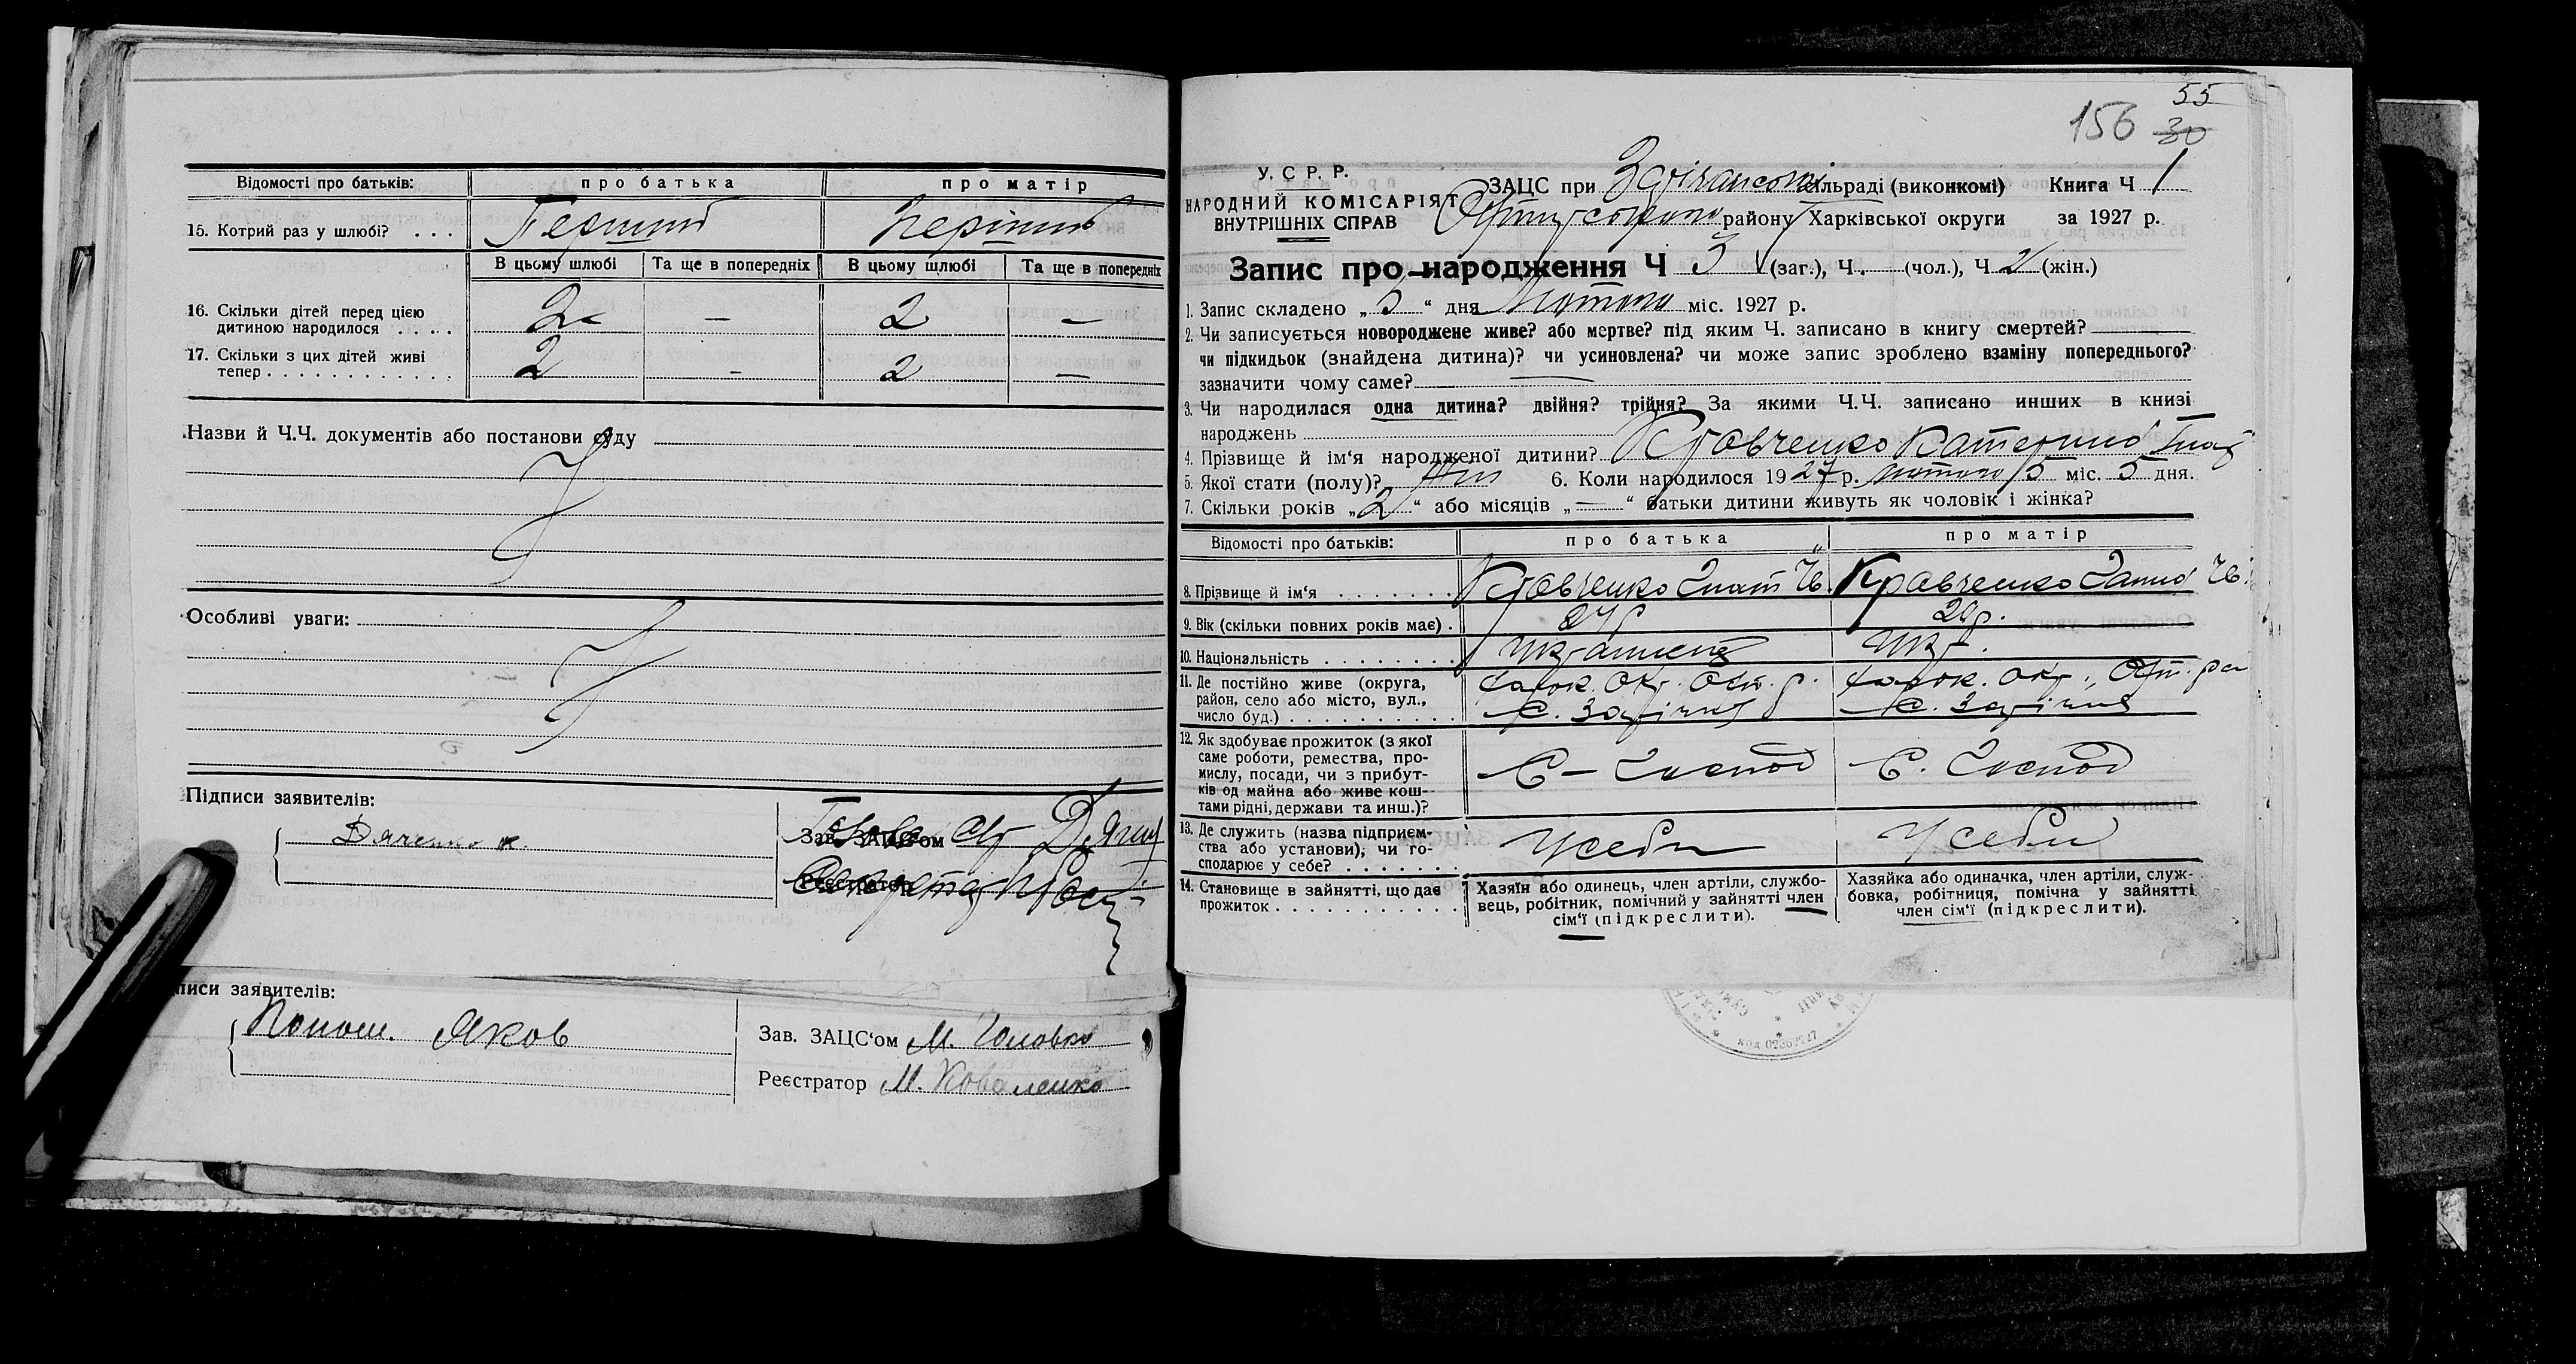 Відомості про батьків: про батька про матір
15. Котрий раз у шлюбі? . . . Перший Перший
В цьому шлюбі Та ще в попередніх В цьому шлюбі Та ще в попередніх
16. Скільки дітей перед цією
дитиною народилося . . . . 2 — 2 —
17. Скільки з цих дітей живі
тепер . . . . . . . . . . . . . 2 - 2 —
Назви й Ч.Ч. документів або постанови суду
Особливі уваги:
Підписи заявителів:
Дяченко к.
Зав. ЗАЦС‘ом
Реєстратор
писи заявителів:
Яков
Зав. ЗАЦС‘ом М. Головко
Реєстратор М. Коваленко
55
156 30
У. С Р. Р.
НАРОДНИЙ КОМІСАРІЯТ
ВНУТРІШНІХ СПРАВ
ЗАЦС при сільраді (виконкомі) Книга Ч 1
району Харківської округи за 1927 р.
Запис про народження Ч 3 (заг.), Ч. (чол.), Ч 2 (жін.)
1. Запис складено „ 5 “ дня Лютого міс. 1927 р.
2. Чи записується новороджене живе? або мертве? під яким Ч. записано в книгу смертей?
чи підкидьок (знайдена дитина)? чи усиновлена? чи може запис зроблено взаміну попереднього?
зазначити чому саме? —
3. Чи народилася одна дитина? двійня? трійня? За якими Ч.Ч. записано инших в книзі
народжень
4. Прізвище й ім‘я народженої дитини? Кравченко Катерина Гнат
5. Якої стати (полу)? жін 6. Коли народилося 1927 р. лютого 5 міс. 5 дня.
7. Скільки років „ 2 “ або місяців „ — “ батьки дитини живуть як чоловік і жінка?
Відомості про батьків: про батька про матір
8. Прізвище й ім‘я . . . . . . . Кравченко Гнат Ів. Кравченко Ганна Ів
9. Вік (скільки повних років має) . 24р 20р.
10. Національність . . . . . . . . Українец Укр.
11. Де постійно живе (округа,
район, село або місто, вул.,
число буд.) . . . . . . . . . . .
Харк. Окр. р. Харк. окр.,
с. Зарічня с. Зарічня
12. Як здобуває прожиток (з якої
саме роботи, ремества, про-
мислу, посади, чи з прибут-
ків од майна або живе кош-
тами рідні, держави та инш.)?
С - Господ С. Господ
13. Де служить (назва підприєм-
ства або установи), чи го-
сподарює у себе? . . . . . . .
Усеби Усеби
14. Становище в зайнятті, що дає
прожиток . . . . . . . . . . . .
Хазяїн або одинець, член артіли, службо-
вець, робітник, помічний у зайнятті член
сім‘ї (підкреслити).
Хазяйка або одиначка, член артіли, служ-
бовка, робітниця, помічна у зайнятті
член сім‘ї (підкреслити).